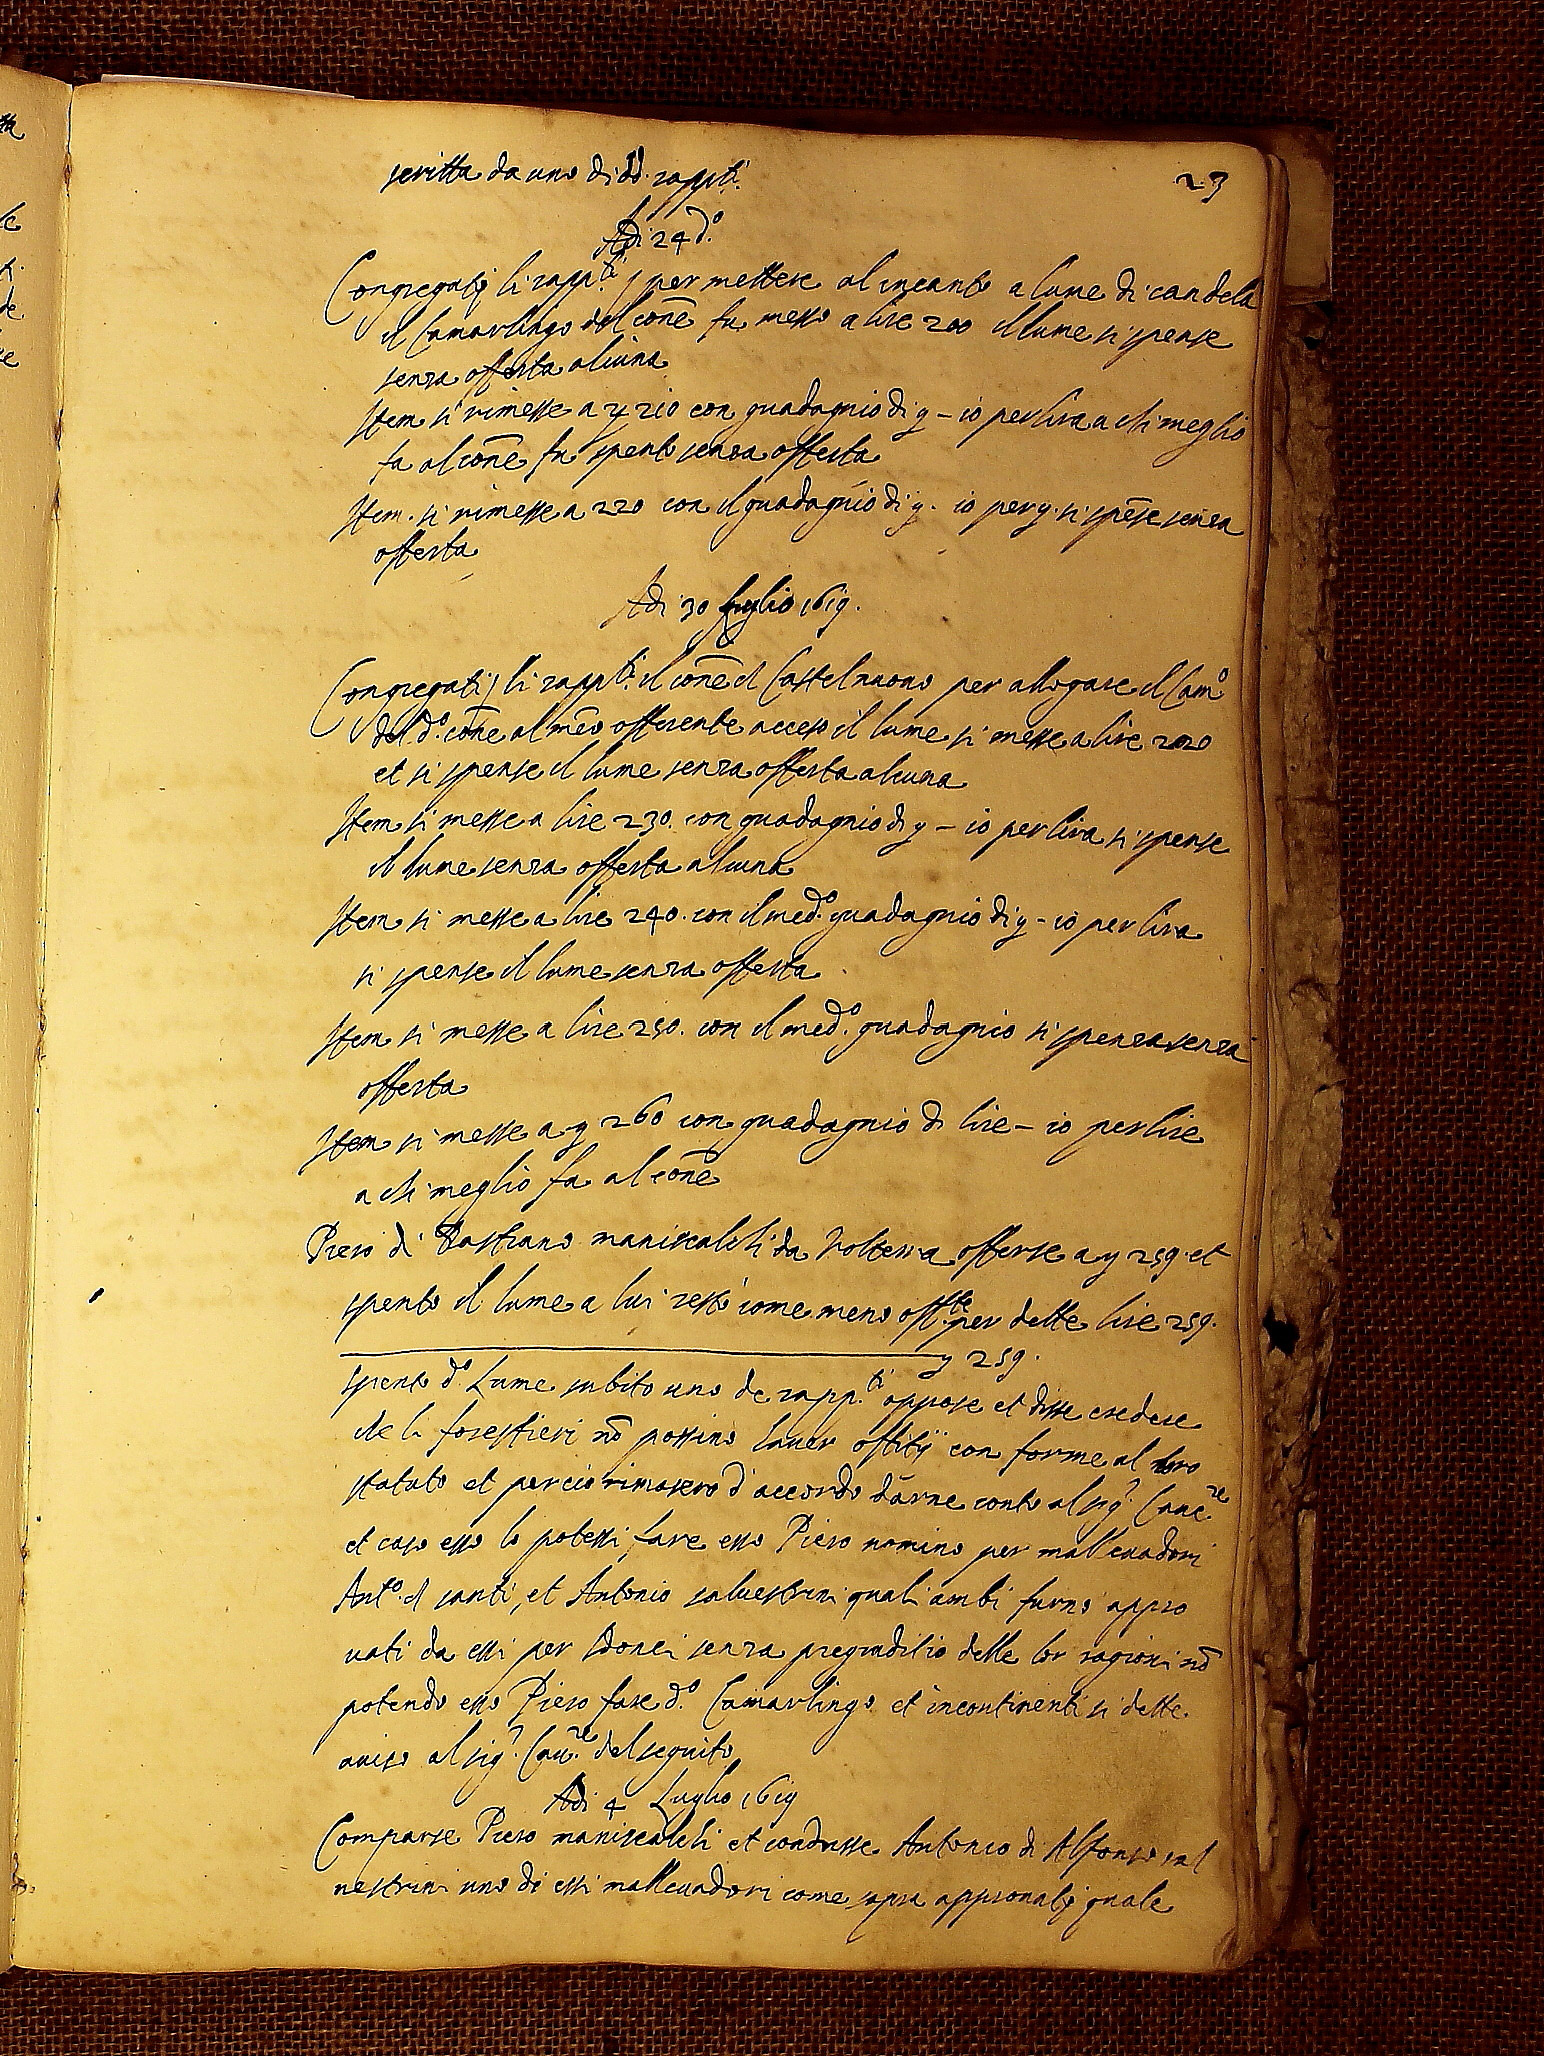 scritta da uno di dd. rapp.ti
23
Adi 24 d.o
Congregatj li rapp.ti j per mettere al incanto a lume di candela
il Camarlingo del cōne fu messo a lire 200 il lume si spense
senza offerta alcuna
Item si rimesse a 210 con guadagnio di y - 10 per lira a chi meglio
fa al cōne fu spento senza offerta
Item. si rimesse a 220 con il guadagnio di y. 10 per y. si spēse senza
offerta
Adi 30 luglio 1619.
Congregatj li rapp.ti il cōne d Castelnuouo per allogare il Cam.o
del d.o cōne al mēo offerente acceso il lume si messe a lire 220
et si spense il lume senza offerta alcuna
Item si messe a lire 230. con guadagnio di y - 10 per lira si spense
il lume senza offerta alcuna
Item si messe a lire 240. con il med.o guadagnio di y - 10 per lira
si spense il lume senza offerta
Item si messe a lire 250. con il med.o guadagnio si spensa senza
offerta
Item si messe a y 260 con guadagnio di lire - 10 per lire
a chi meglio fa al cōne
Piero di Bastiano maniscalchi da Volterra offerse a y 259. et
spento il lume a lui restò come meno off.te per dette lire 259.
y 259.
spento d.o Lume subito uno de rapp.ti oppose et disse credere
che li forestieri nō possino hauer offitij con forme al loro
statuto et perciò rimasero d'accordo dārne conto al sig.r Canc.re
et caso esso lo potessi fare esso Piero nomino per malleuadori
Ant.o d santi, et Antonio saluestrini quali ambi furno appro
uati da essi per Idonei senza pregiuditio delle lor ragioni nō
potendo esso Piero fare d.o Camarlingo et incontinenti si dette
auiso al sig.r Can.re del seguito
Adi 4 Luglio 1619
Comparse Piero maniscalchi et condusse Antonio di Alfonso sal
uestrini uno di essi malleuadori come sopra approuatj quale